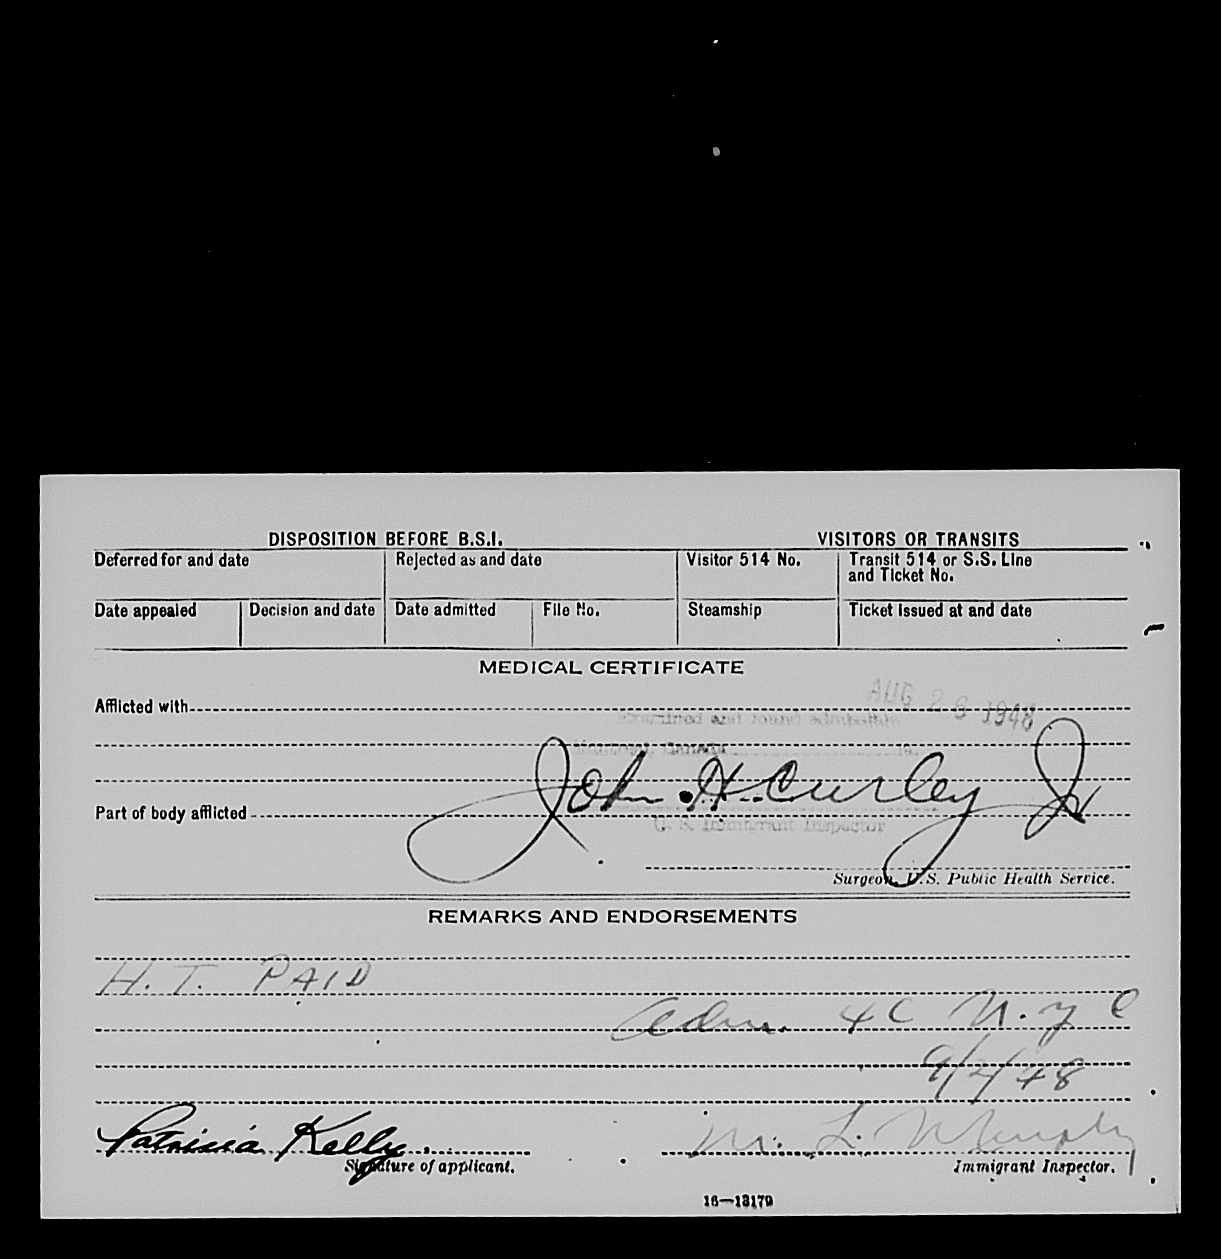 DISPOSITION BEFORE B.S.I. VISITORS OR TRANSITS
Deferred for and date Rejected as and date Visitor 514 No. Transit 514 or S.S. Line
and Ticket No.
Date appealed Decision and date Date admitted File No. Steamship Ticket issued at and date
MEDICAL CERTIFICATE
AUG 26 1948
Afflicted with
Examined and found admissible
Montreal, Canada 19
John H Curley Jr
Part of body afflicted
U. S. Immigrant Inspector
Surgeon, U.S. Public Health Service.
REMARKS AND ENDORSEMENTS
H. T. PAID
Adm. 4C N.Y C
9/2/48
Patricia Kelly. M. L. Murphy
Signature of applicant. Immigrant Inspector.
16—13179